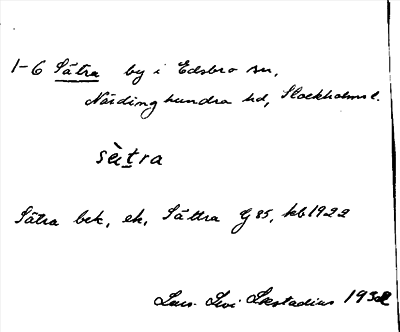 1-6 Sätra by i Edsbro sn,
Närdinghundra hd, Stockholms l.
sä̀tra
Sätra bek, ek, Sättra G 85, kb 1922
Lars Levi Læstadius 1932